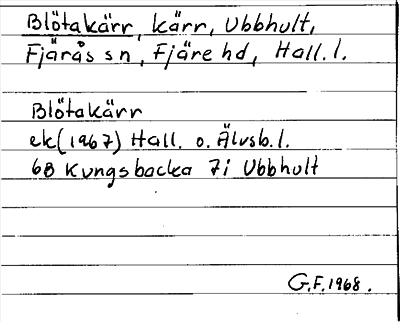 Blötakärr, kärr, Ubbhult,
Fjärås sn, Fjäre hd, Hall. l.
Blötakärr
ek (1967) Hall. o. Älvsb. l.
6B Kungsbacka 7i Ubbhult
G.F. 1968.